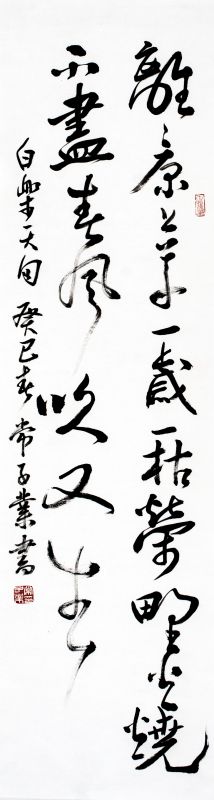 離原上草一歲一枯榮野火燒
不盡春風吹又生
白樂天句 癸巳春 常子業書